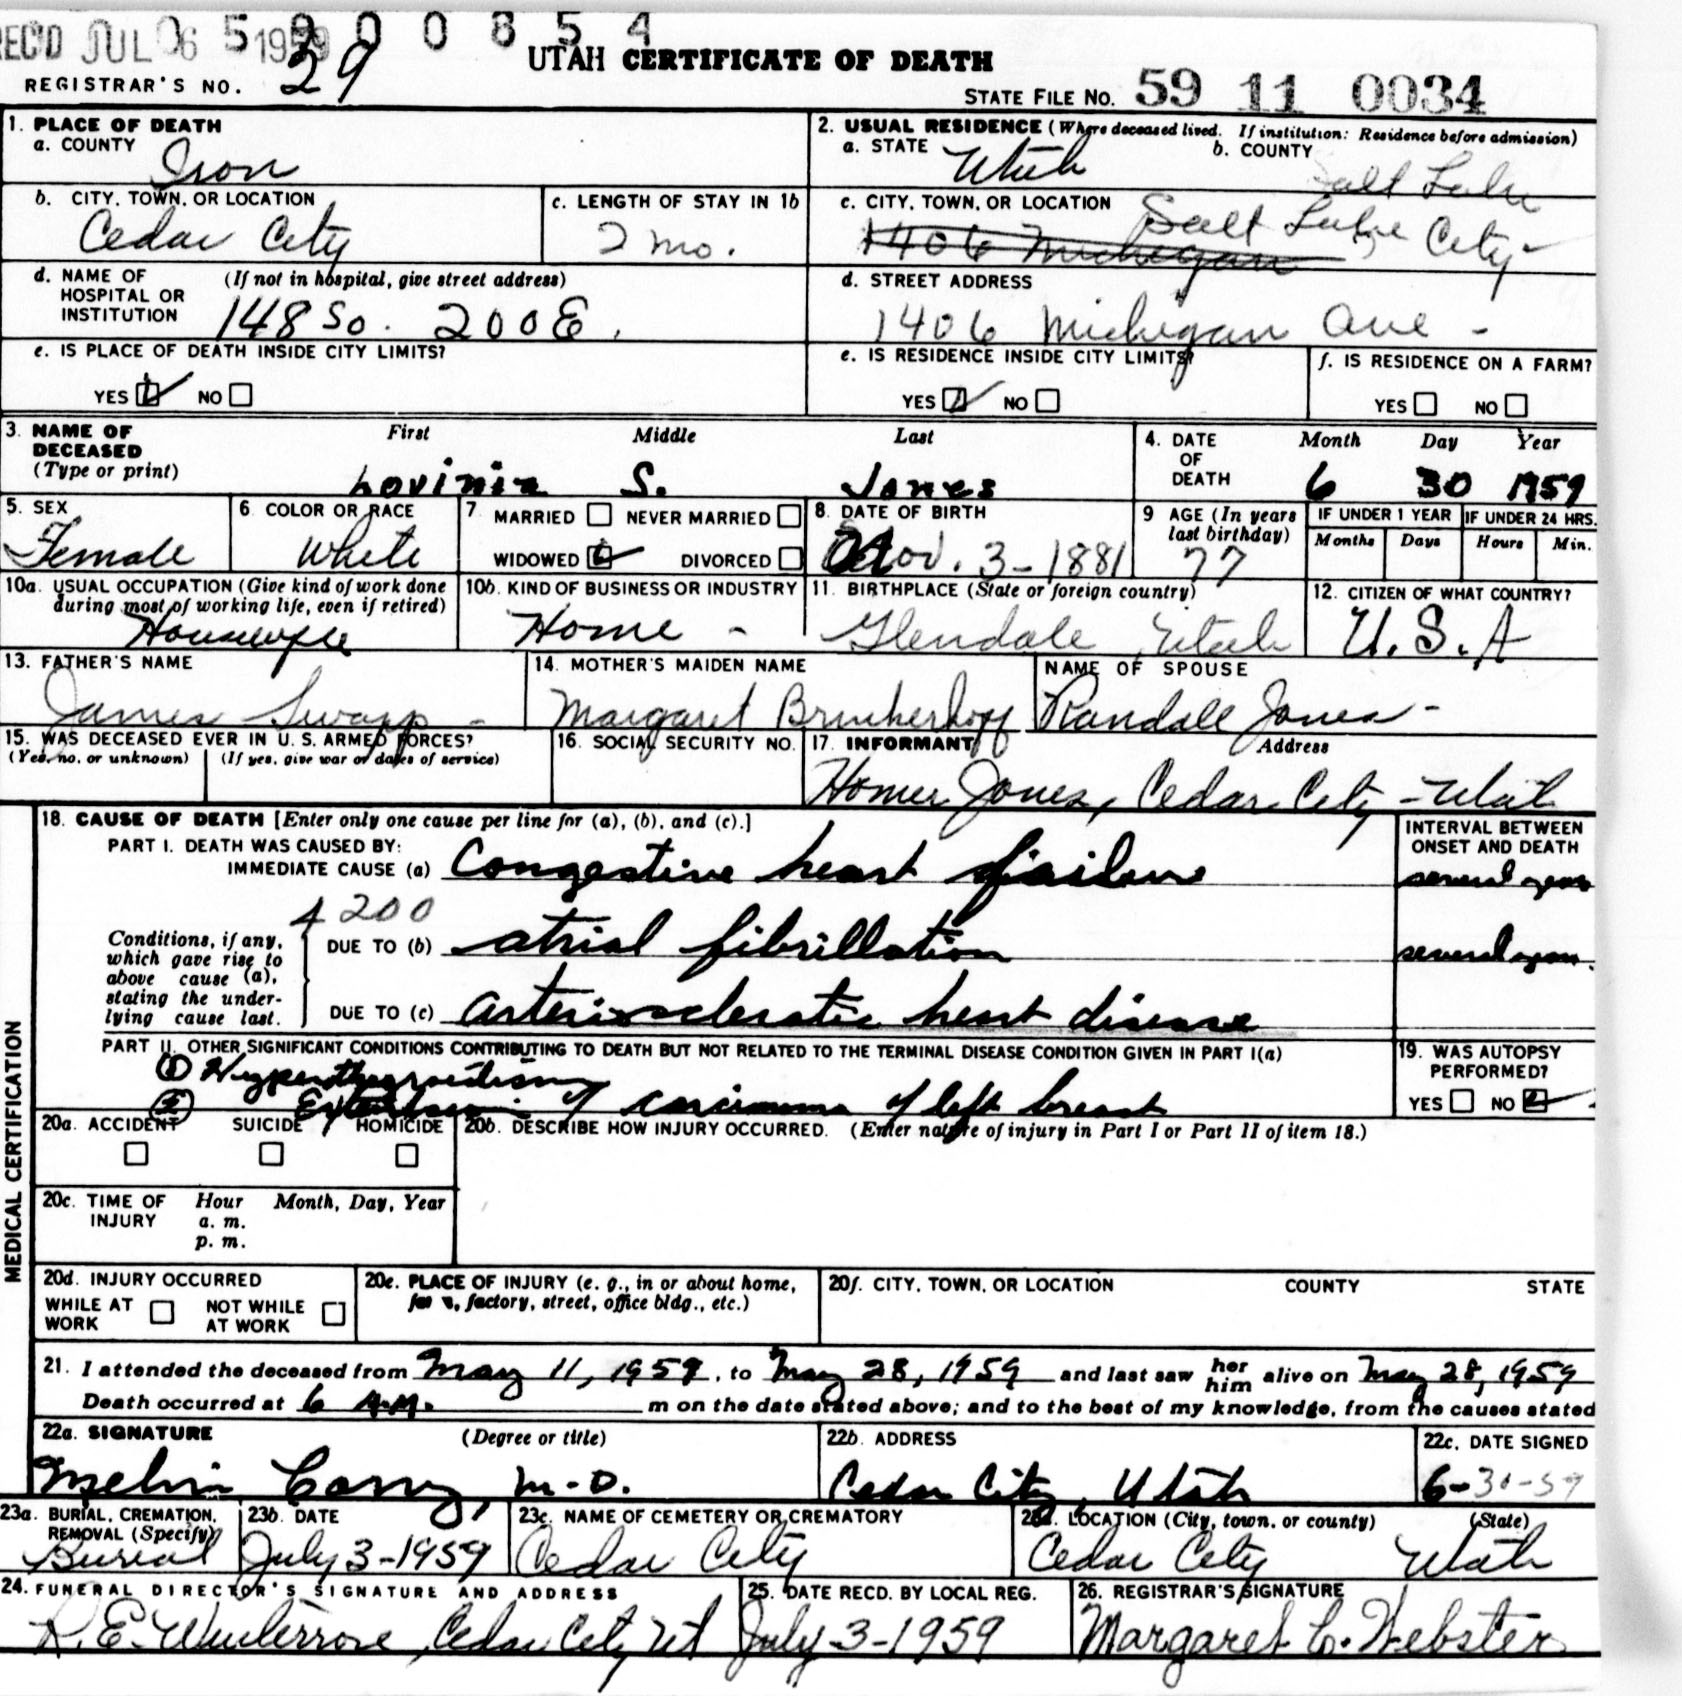 REC'D JUL 06 1959 5 9 0 0 8 5 4
UTAH CERTIFICATE OF DEATH
REGISTRAR'S NO. 29
STATE FILE NO. 59 11 0034
1. PLACE OF DEATH
a. COUNTY Iron
2. USUAL RESIDENCE (Where deceased lived. If institution: Residence before admission)
a. STATE Utah b. COUNTY Salt Lake
b. CITY, TOWN, OR LOCATION Cedar City
c. LENGTH OF STAY IN 1b 2 mo.
c. CITY, TOWN, OR LOCATION Salt Lake City
1406 Michigan
d. NAME OF HOSPITAL OR INSTITUTION (If not in hospital, give street address) 148 So. 200 E.
d. STREET ADDRESS 1406 Michigan Ave -
e. IS PLACE OF DEATH INSIDE CITY LIMITS?
YES NO
e. IS RESIDENCE INSIDE CITY LIMITS?
YES NO
f. IS RESIDENCE ON A FARM?
YES NO
3. NAME OF DECEASED (Type or print)
First Middle Last
Lovinia S. Jones
4. DATE OF DEATH
Month Day Year
6 30 1959
5. SEX Female
6. COLOR OR RACE White
7. MARRIED NEVER MARRIED
WIDOWED DIVORCED
8. DATE OF BIRTH Nov. 3-1881
9 AGE (In years last birthday) 77
IF UNDER 1 YEAR IF UNDER 24 HRS.
Months Days Hours Min.
10a. USUAL OCCUPATION (Give kind of work done during most of working life, even if retired)
Housewife
10b. KIND OF BUSINESS OR INDUSTRY
Home -
11. BIRTHPLACE (State or foreign country)
Glendale, Utah
12. CITIZEN OF WHAT COUNTRY?
U.S.A
13. FATHER'S NAME
James Swapp -
14. MOTHER'S MAIDEN NAME
Margaret Brinkerhoff
NAME OF SPOUSE
Randall Jones -
15. WAS DECEASED EVER IN U. S. ARMED FORCES?
(Yes, no, or unknown) (If yes, give war or dates of service)
16. SOCIAL SECURITY NO.
17. INFORMANT Address
Homer Jones, Cedar City - Utah
MEDICAL CERTIFICATION
18. CAUSE OF DEATH [Enter only one cause per line for (a), (b), and (c).]
PART I. DEATH WAS CAUSED BY:
IMMEDIATE CAUSE (a) Congestive heart failure
INTERVAL BETWEEN ONSET AND DEATH
several years
4200
Conditions, if any, which gave rise to above cause (a), stating the underlying cause last.
DUE TO (b) atrial fibrillation
several years
DUE TO (c) arteriosclerotic heart disease
PART II. OTHER SIGNIFICANT CONDITIONS CONTRIBUTING TO DEATH BUT NOT RELATED TO THE TERMINAL DISEASE CONDITION GIVEN IN PART I(a)
(1) Hyperthyroidism
(2) of carcinoma of left breast
19. WAS AUTOPSY PERFORMED?
YES NO
20a. ACCIDENT SUICIDE HOMICIDE
20b. DESCRIBE HOW INJURY OCCURRED. (Enter nature of injury in Part I or Part II of item 18.)
20c. TIME OF INJURY Hour Month, Day, Year
a. m.
p. m.
20d. INJURY OCCURRED
WHILE AT WORK NOT WHILE AT WORK
20e. PLACE OF INJURY (e. g., in or about home, farm, factory, street, office bldg., etc.)
20f. CITY, TOWN, OR LOCATION COUNTY STATE
21. I attended the deceased from May 11, 1959, to May 28, 1959 and last saw her him alive on May 28, 1959
Death occurred at 6 A.M. m on the date stated above; and to the best of my knowledge, from the causes stated
22a. SIGNATURE (Degree or title)
Melvin M.D.
22b. ADDRESS
Cedar City, Utah
22c. DATE SIGNED
6-30-59
23a. BURIAL, CREMATION, REMOVAL (Specify)
Burial
23b. DATE
July 3-1959
23c. NAME OF CEMETERY OR CREMATORY
Cedar City
23d. LOCATION (City, town, or county) (State)
Cedar City Utah
24. FUNERAL DIRECTOR'S SIGNATURE AND ADDRESS
R. E. Winterrose Cedar City Ut
25. DATE RECD. BY LOCAL REG.
July 3-1959
26. REGISTRAR'S SIGNATURE
Margaret C. Webster